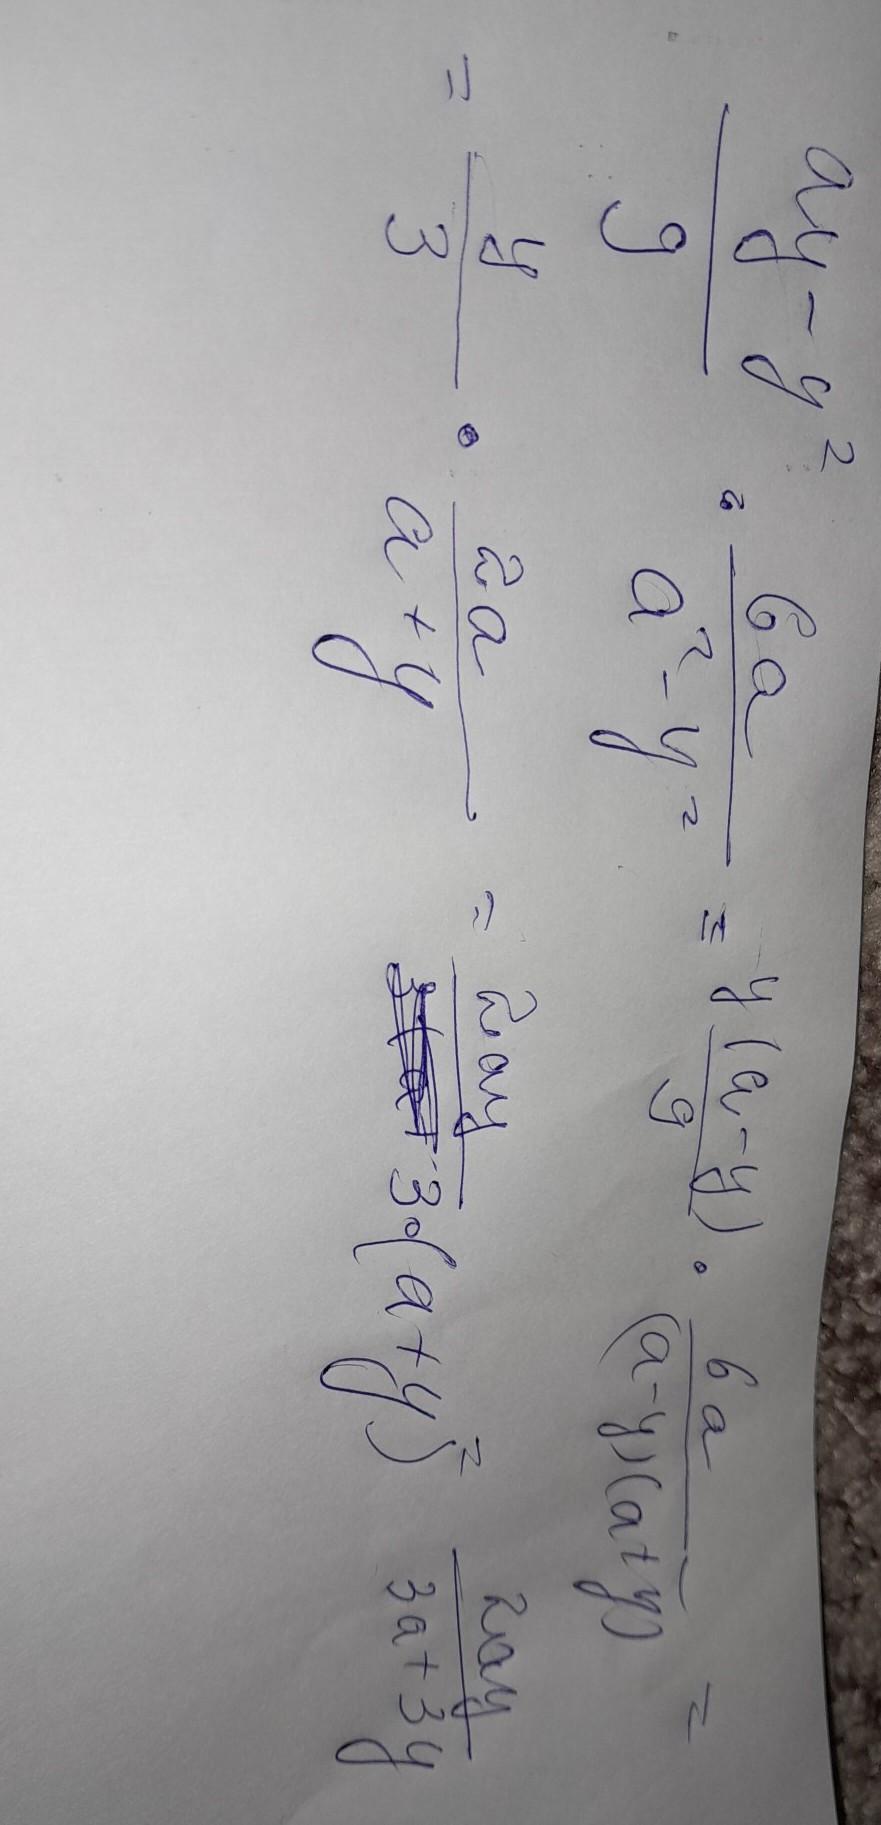 (ay-y²)/9 · 6a/(a²-y²) = y(a-y)/9 · 6a/((a-y)(a+y)) =
= y/3 · 2a/(a+y) = 2ay/(3·(a+y)) = 2ay/(3a+3y)